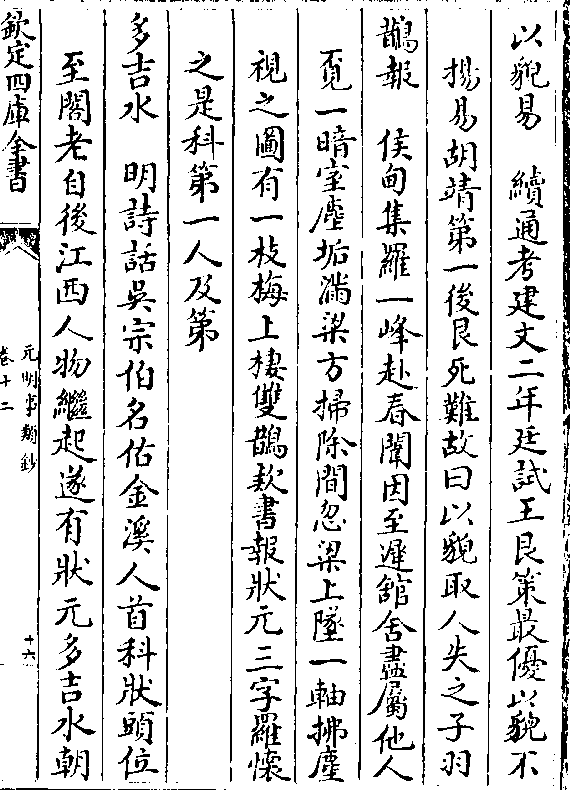 以貌易　續通考建文二年廷試王艮策最優以貌不
揚易胡靖第一後艮死難故曰以貌取人失之子羽
鵲報　侯甸集羅一峰赴春闈因至遲舘舍盡屬他人
覓一暗室塵垢滿梁方掃除間忽梁上墜一軸拂塵
視之圖有一枝梅上棲雙鵲款書報狀元三字羅懷
之是科第一人及第
多吉水　明詩話吳宗伯名佑金溪人首科狀頭位
至閣老自後江西人物繼起遂有狀元多吉水朝
欽定四庫全書
元明事類鈔
卷十二
十六